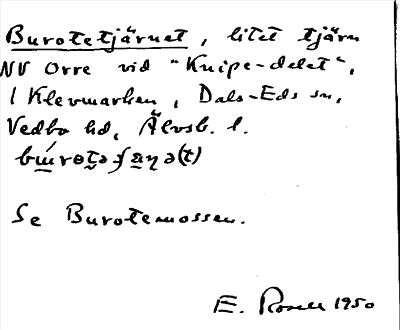 Burotetjärnet, litet tjärn
NV Orre vid "Knipe-delet",
i Klevmarken, Dals-Eds sn,
Vedbo hd, Älvsb. l.
Se Burotemossen.
E. 1950